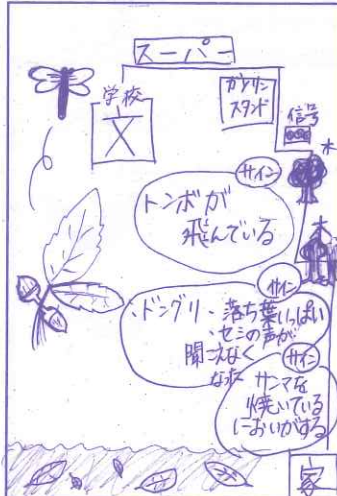 スーパー
学校
文
ガソリン
スタンド
信号
木
サイン
トンボが
飛んでいる
木
サイン
・ドングリ・落ち葉いっぱい
・セミの声が
聞こえなく
なった
サイン
サンマを
焼いている
においがする
家